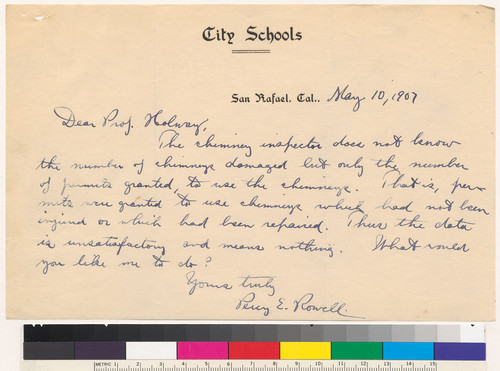 City Schools
San Rafael, Cal., May 10, 1907
Dear Prof. Holway,
The chimney inspector does not know
the number of chimneys damaged but only the number
of permits granted, to use the chimneys. That is, per-
mits were granted to use chimneys which had not been
injured or which had been repaired. Thus the data
is unsatisfactory and means nothing. What would
you like me to do?
Yours truly
Percy E. Rowell.
METRIC 1 2 3 4 5 6 7 8 9 10 11 12 13 14 15